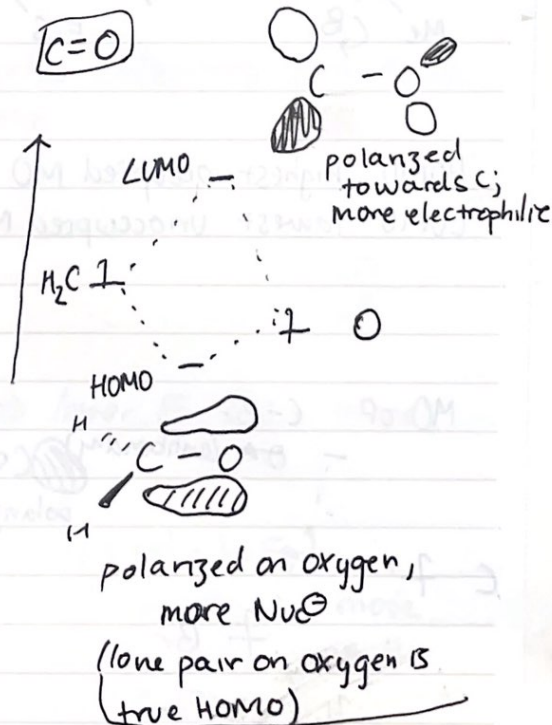 C=O
C - O
polarized
towards C;
more electrophilic
LUMO
H₂C
O
HOMO
H
C - O
H
polarized on oxygen,
more Nuc⊖
(lone pair on oxygen is
true HOMO)